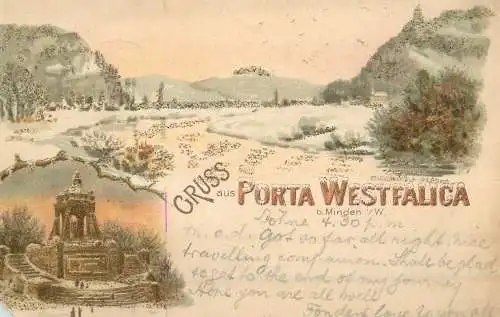 GRUSS
aus PORTA WESTFALICA
b. Minden i/W.
4.30 p.m
m.a.d. Got so far all right, nice
travelling companion. Shall be glad
to get to the end of my journey
Hope you are all well
Fondest love to you all